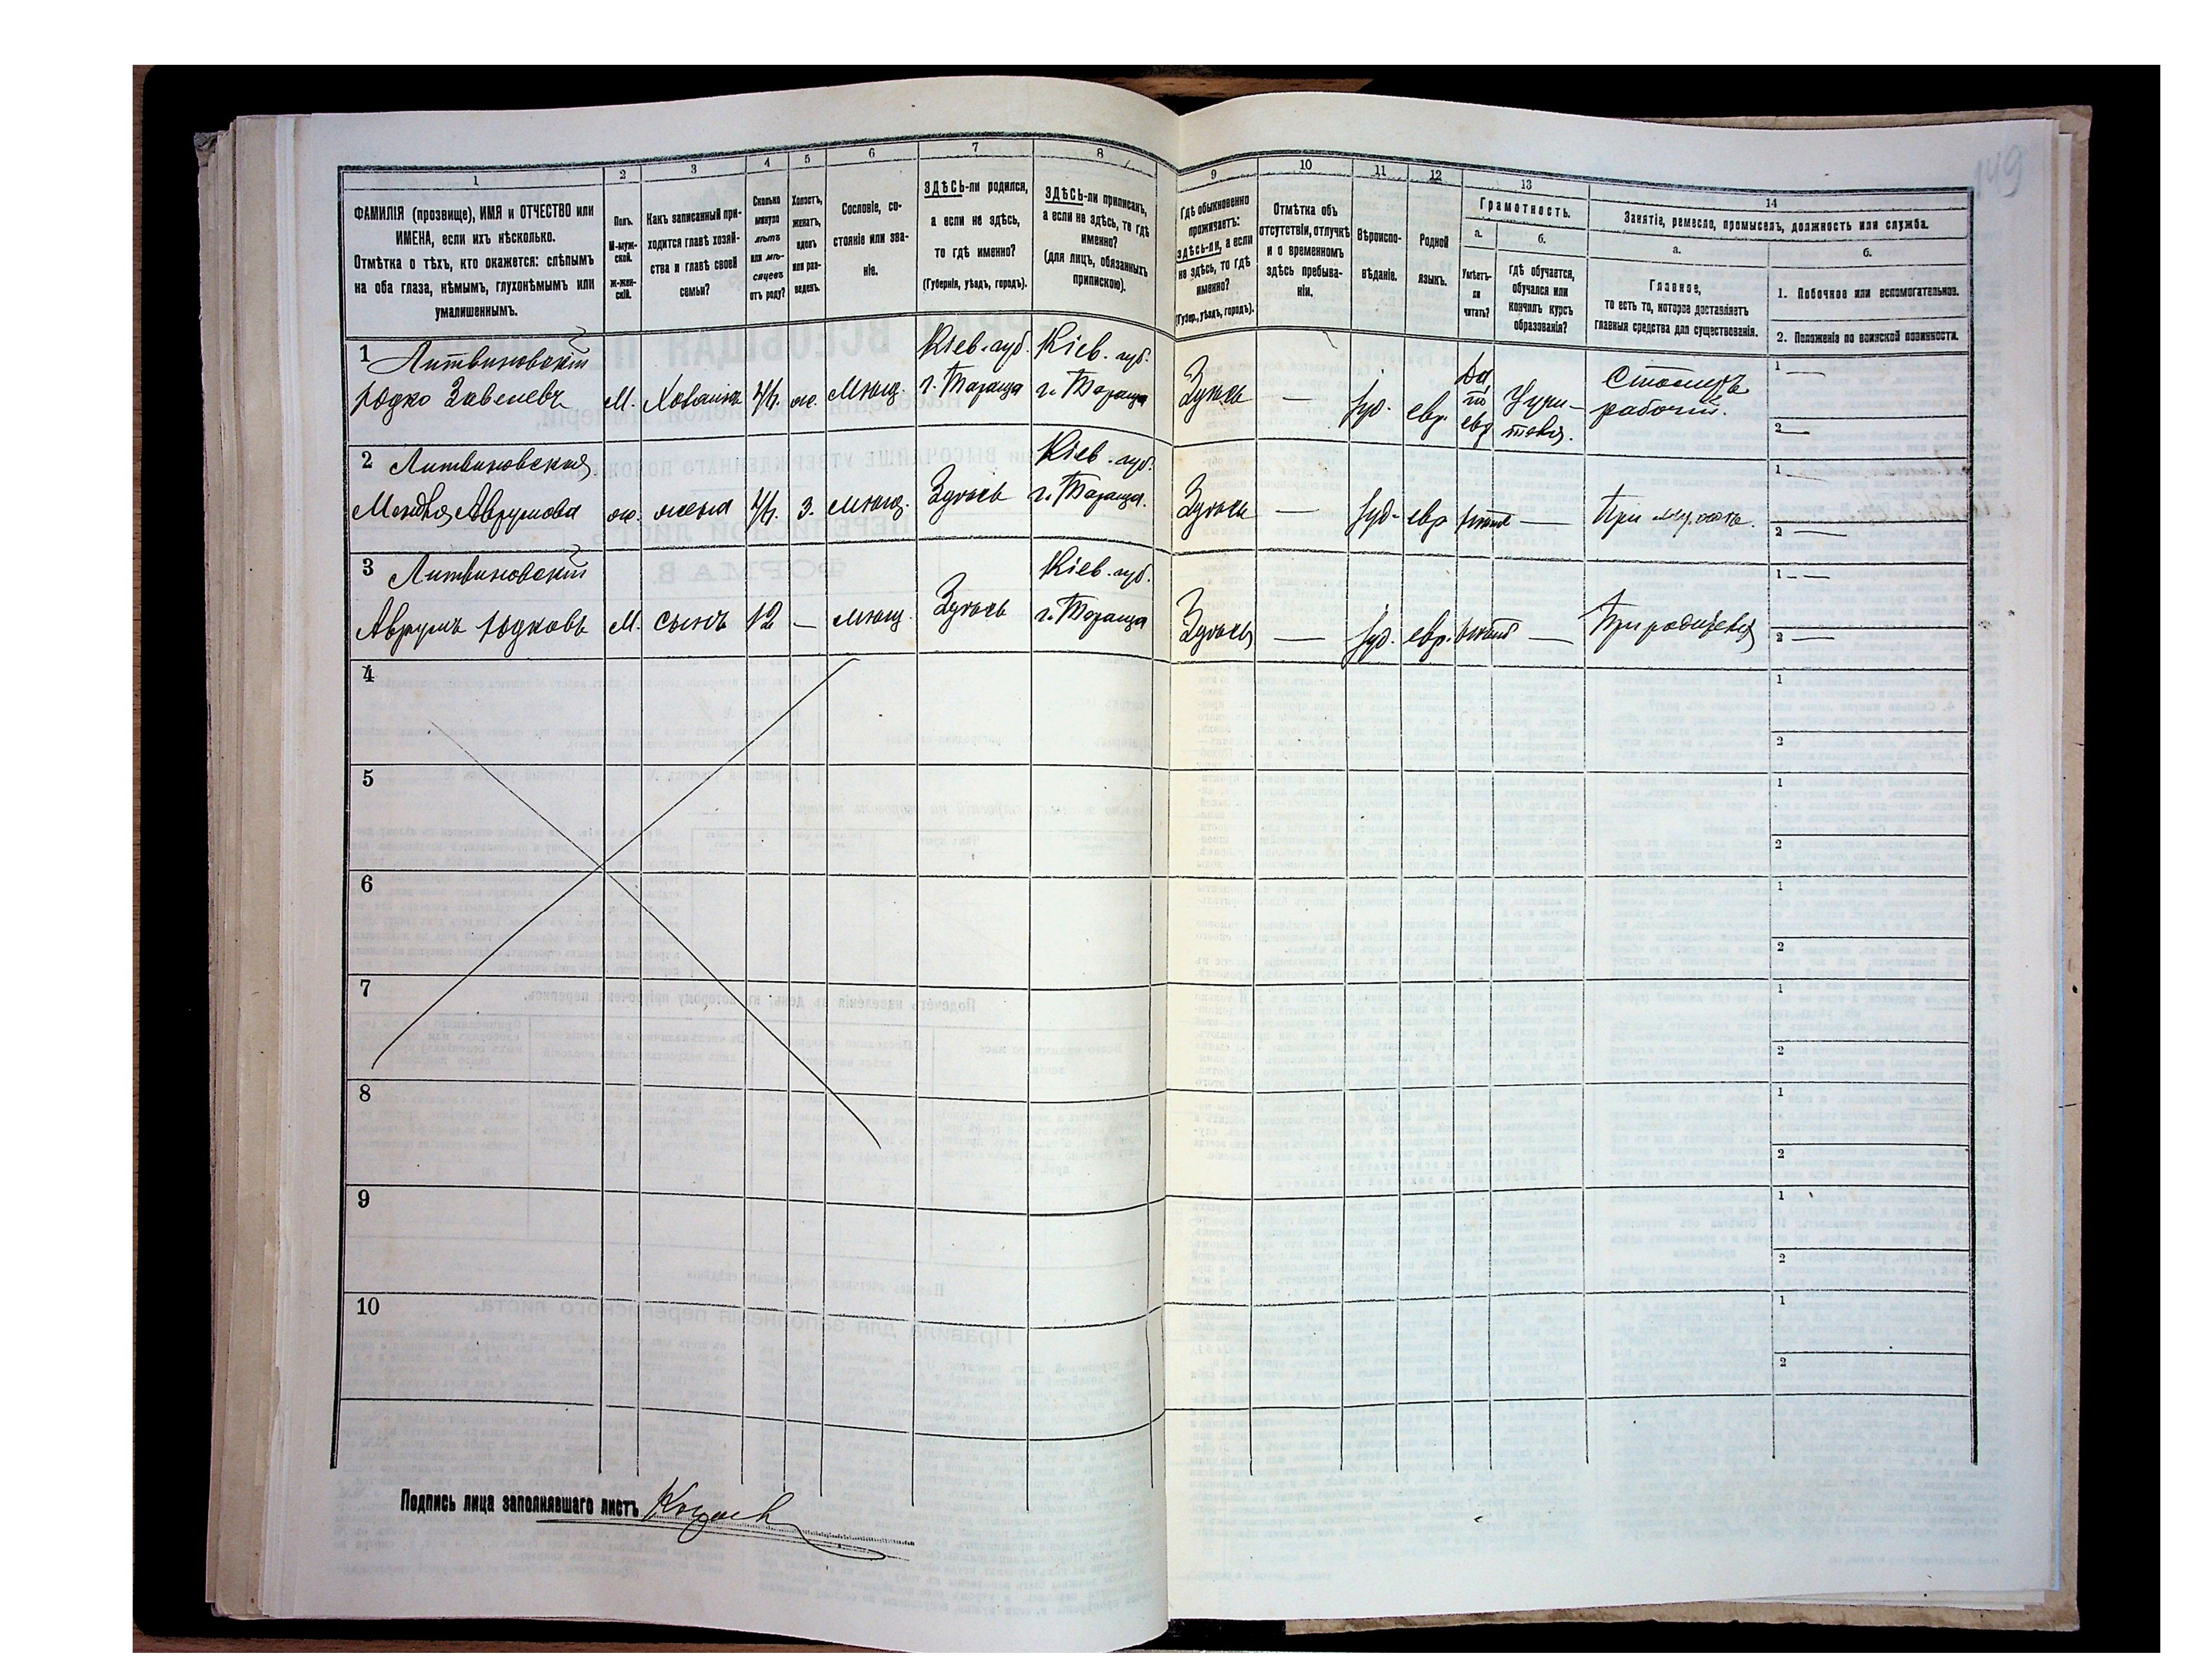 149
1
ФАМИЛІЯ (прозвище), ИМЯ и ОТЧЕСТВО или
ИМЕНА, если ихъ нѣсколько.
Отмѣтка о тѣхъ, кто окажется: слѣпымъ
на оба глаза, нѣмымъ, глухонѣмымъ или
умалишеннымъ.
2
Полъ.
М-муж-
ской.
Ж-жен-
скій.
3
Какъ записанный при-
ходится главѣ хозяй-
ства и главѣ своей
семьи?
4
Сколько
минуло
лѣтъ
или мѣ-
сяцевъ
отъ роду?
5
Холостъ,
женатъ,
вдовъ
или раз-
веденъ.
6
Сословіе, со-
стояніе или зва-
ніе.
7
ЗДѢСЬ-ли родился,
а если не здѣсь,
то гдѣ именно?
(Губернія, уѣздъ, городъ).
8
ЗДѢСЬ-ли приписанъ,
а если не здѣсь, то гдѣ
именно?
(для лицъ, обязанныхъ
припискою).
9
Гдѣ обыкновенно
проживаетъ:
здѣсь-ли, а если
не здѣсь, то гдѣ
именно?
(Губер., уѣздъ, городъ).
10
Отмѣтка объ
отсутствіи, отлучкѣ
и о временномъ
здѣсь пребыва-
ніи.
11
Вѣроиспо-
вѣданіе.
12
Родной
языкъ.
13
Грамотность.
а.
Умѣетъ-
ли
читать?
б.
гдѣ обучается,
обучался или
кончилъ курсъ
образованія?
14
Занятія, ремесло, промыселъ, должность или служба.
а.
Главное,
то есть то, которое доставляетъ
главныя средства для существованія.
б.
1. Побочное или вспомогательное.
2. Положеніе по воинской повинности.
1 Литвиновскій
М.
ж.
мѣщ.
Кіев. губ.
г. Тараща
Кіев. губ.
г. Тараща
Здѣсь
—
іуд.
евр.
да
по
евр
Учи-
теля.
рабочій.
1 —
2 —
2 Литвиновская
Аврумова
ж.
жена
з.
мѣщ.
Здѣсь
Кіев. губ.
г. Тараща.
Здѣсь
—
іуд.
евр
нѣтъ
—
При мужѣ.
1 —
2 —
3 Литвиновскій
Аврумъ Юдковъ
М.
сынъ
12
—
мѣщ.
Здѣсь
Кіев. губ.
г. Тараща
Здѣсь
—
іуд.
евр.
нѣтъ
—
1 —
2 —
4
1
2
5
1
2
6
1
2
7
1
2
8
1
2
9
1
2
10
1
2
Подпись лица заполнявшаго листъ